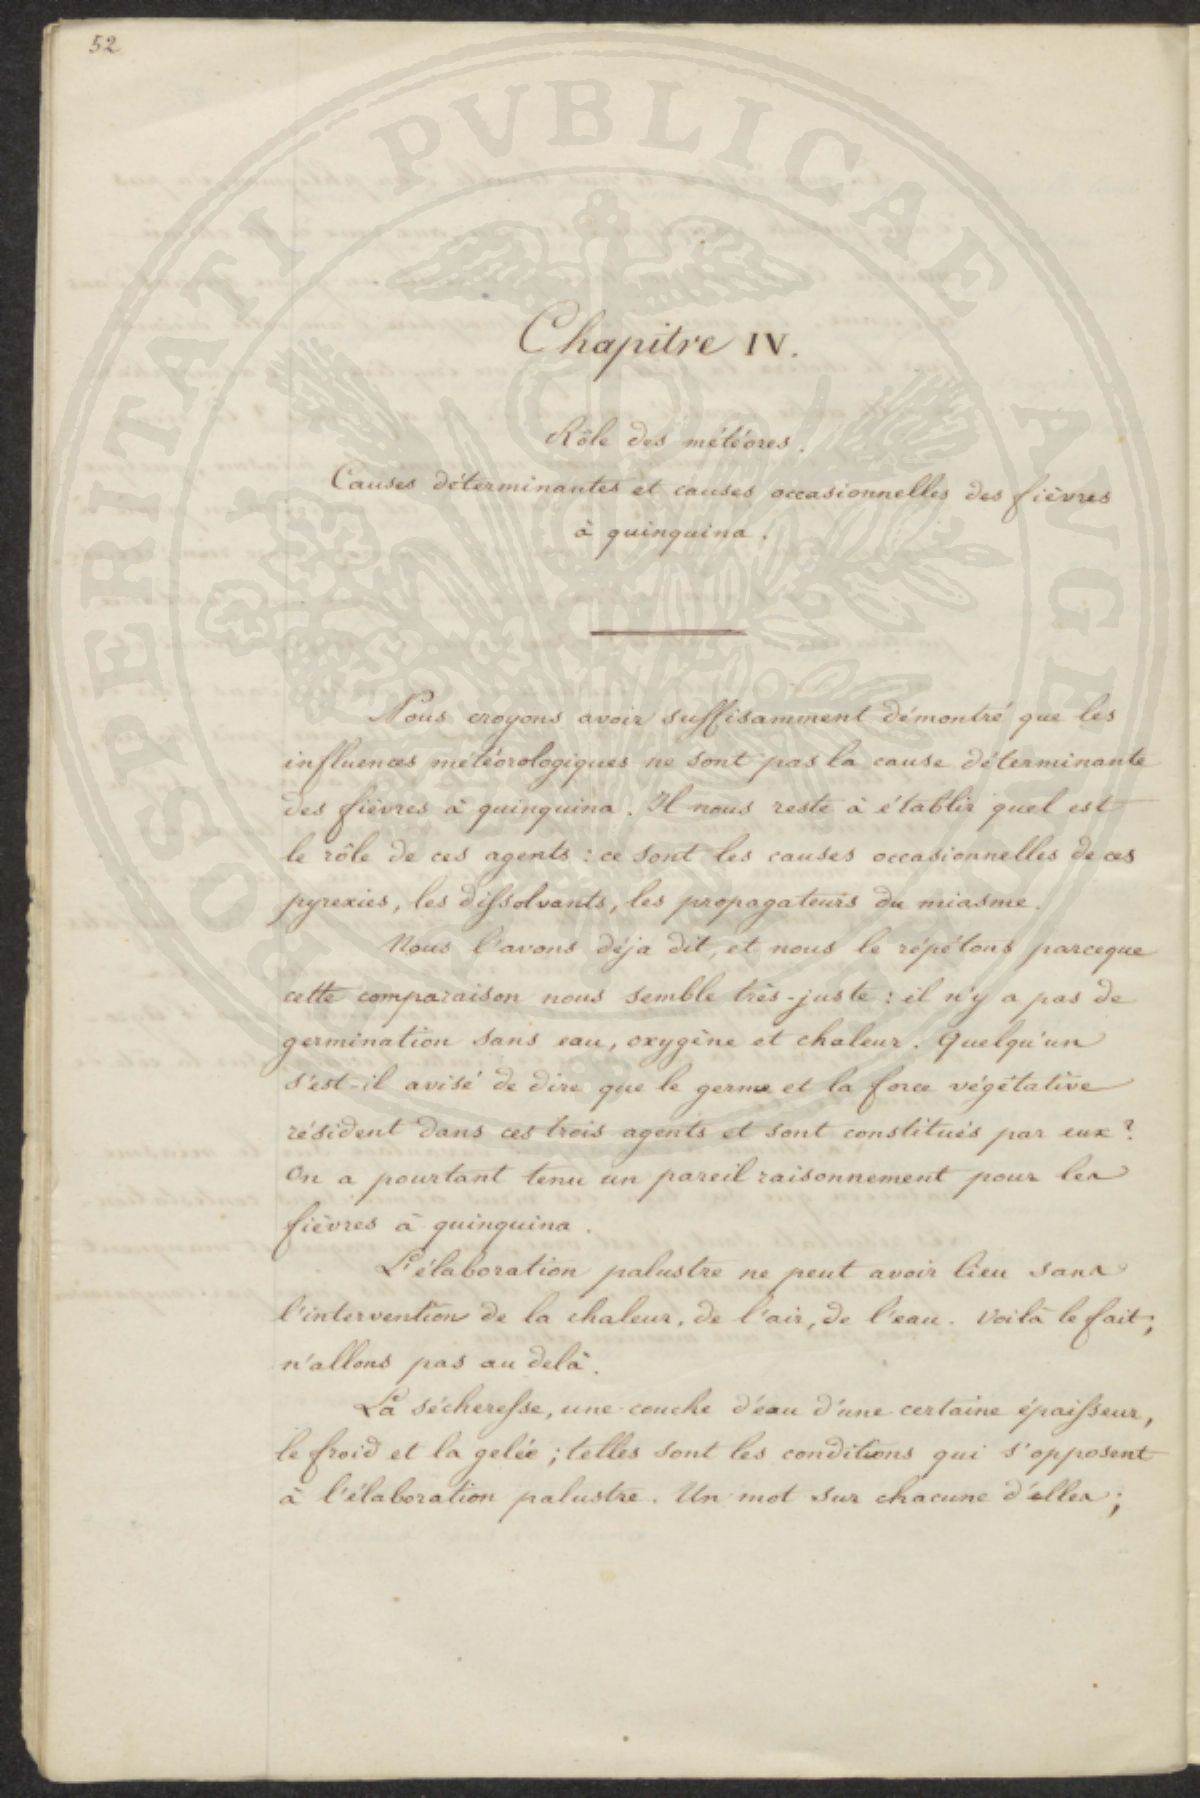 52
PROSPERITATI PUBLICAE AUGENDAE
Chapitre IV.
Rôle des météores.
Causes déterminantes et causes occasionnelles des fièvres
à quinquina.
Nous croyons avoir suffisamment démontré que les
influences météorologiques ne sont pas la cause déterminante
des fièvres à quinquina. Il nous reste à établir quel est
le rôle de ces agents : ce sont les causes occasionnelles de ces
pyrexies, les dissolvants, les propagateurs du miasme.
Nous l'avons déja dit, et nous le répétons parceque
cette comparaison nous semble très-juste : il n'y a pas de
germination sans eau, oxygène et chaleur. Quelqu'un
s'est-il avisé de dire que le germe et la force végétative
résident dans ces trois agents et sont constitués par eux ?
On a pourtant tenu un pareil raisonnement pour les
fièvres à quinquina.
L'élaboration palustre ne peut avoir lieu sans
l'intervention de la chaleur, de l'air, de l'eau. Voilà le fait;
n'allons pas au delà.
La sécheresse, une couche d'eau d'une certaine épaisseur,
le froid et la gelée ; telles sont les conditions qui s'opposent
à l'élaboration palustre. Un mot sur chacune d'elles ;